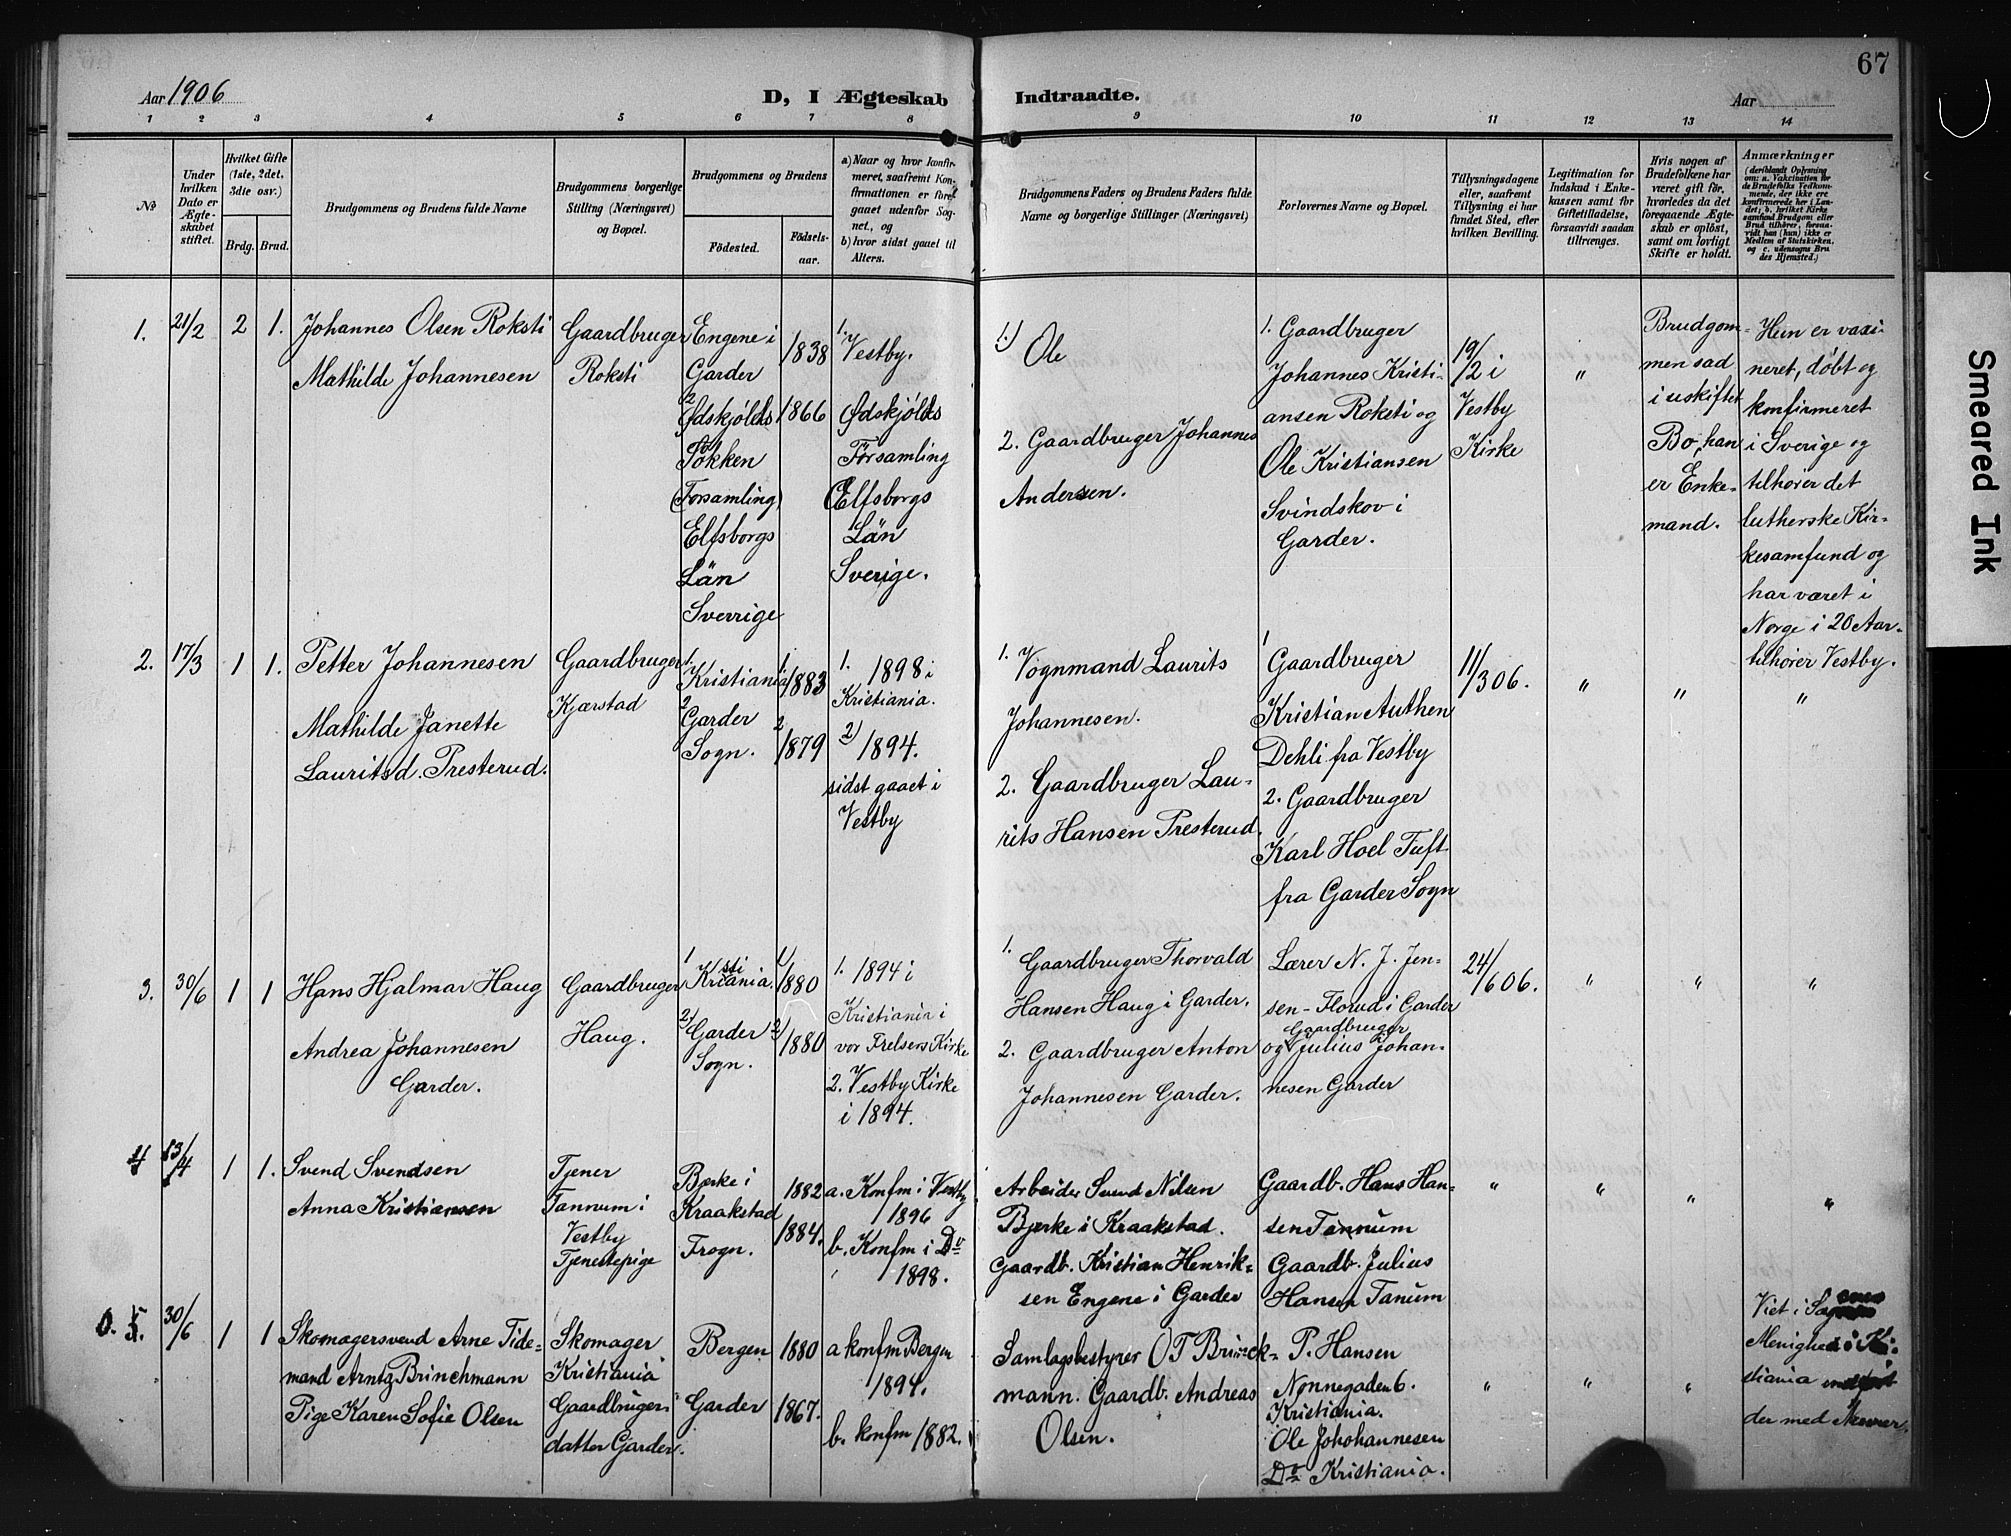 67
Aar 1906
D, I Ægteskab Indtraadte.
Aar
1 2 3 4 5 6 7 8 9 10 11 12 13 14
No
Under
hvilken
Dato er
Ægte-
skabet
stiftet.
Hvilket Gifte
(1ste, 2det,
3die osv.)
Brdg. Brud.
Brudgommens og Brudens fulde Navne
Brudgommens borgerlige
Stilling (Næringsvei)
og Bopæl.
Brudgommens og Brudens
Födested.
Födsels-
aar.
a) Naar og hvor konfir-
meret, saafremt Kon-
firmationen er fore-
gaaet udenfor Sog-
net, og
b) hvor sidst gaaet til
Alters.
Brudgommens Faders og Brudens Faders fulde
Navne og borgerlige Stillinger (Næringsvei)
Forlovernes Navne og Bopæl.
Tillysningsdagene
eller, saafremt
Tillysning ei har
fundet Sted, efter
hvilken Bevilling.
Legitimation for
Indskud i Enke-
kassen samt for
Giftetilladelse,
forsaavidt saadan
tiltrænges.
Hvis nogen af
Brudefolkene har
været gift för,
hvorledes da det
foregaaende Ægte-
skab er oplöst,
samt om lovligt
Skifte er holdt.
Anmærkninger
(deriblandt Oplysning
om: a. Vakcination for
de Brudefolks Vedkom-
mende, der ikke ere
konfirmerede her i Lan-
det; b. hvilket Kirke
samfund Brudgom eller
Brud tilhörer, forsaa-
vidt han (hun) ikke er
Medlem af Statskirken,
og c. udensogns Bru-
des Hjemsted.)
1. 21/2 2 1.
Johannes Olsen Roksti
Mathilde Johannesen
Gaardbruger
Roksti
Engene i
Garder
2
Ødskjölds
Tökken
(Forsamling)
Elfsborgs
Län
Sverrige
1838
1866
1.
Vestby.
Ødskjölds
Församling
(Elfsborgs
Län
Sverige.
1.) Ole
2. Gaardbruger Johannes
Andersen.
1. Gaardbruger
Johannes Kristi-
ansen Roksti og
Ole Kristiansen
Svindskov i
Garder.
19/2 i
Vestby
Kirke
"
Brudgom-
men sad
i uskiftet
Bo, han
er Enke-
mand.
Hun er vaxi-
neret, døbt og
konfirmeret
i Sverige og
tilhører det
lutherske Kir-
kesamfund og
har været i
Norge i 20 Aar
tilhører Vestby.
2. 17/3 1 1.
Petter Johannesen
Mathilde Janette
Lauritsd. Presterud.
Gaardbruger
Kjærstad
1. Kristiania
2 Garder
Sogn.
1 1883
2 1879
1. 1898 i
Kristiania.
2) 1894.
sidst gaaet i
Vestby
1. Vognmand Laurits
Johannesen.
2. Gaardbruger Lau-
rits Hansen Presterud.
1 Gaardbruger
Kristian Authen
Dehli fra Vestby
2. Gaardbruger
Karl Hoel Tuft
fra Garder Sogn
11/3 06.
" " "
3. 30/6 1 1
Hans Hjalmar Haug
Andrea Johannesen
Garder.
Gaardbruger
Haug.
1 Kristiania.
2) Garder
Sogn.
1) 1880
2) 1880
1. 1894 i
Kristiania i
vor Frelsers Kirke
2. Vestby Kirke
i 1894.
1. Gaardbruger Thorvald
Hansen Haug i Garder.
2. Gaardbruger Anton
Johannesen Garder.
Lærer N. J. Jen-
sen - Florud i Garder
Gaardbruger
og Julius Johan-
nesen Garder
24/6 06.
" " "
4 13/4 1 1.
Svend Svendsen
Anna Kristiansen
Tjener
Tannum i
Vestby
Tjenestepige
Bjerke i
Kraakstad
Frogn.
1882
1884.
a. Konfm i Vestby
1896
b. Konfm i Do
1898.
Arbeider Svend Nilsen
Bjerke i Kraakstad.
Gaardb. Kristian Henrik-
sen Engene i Garder
Gaardb. Hans Han-
sen Tannum
Gaardb. Julius
Hansen Tanum
" " " "
0. 5. 30/6 1 1
Skomagersvend Arne Tide-
mand Arntz Brinchmann
Pige Karen Sofie Olsen
Skomager
Kristiania
Gaardbruger-
datter Garder.
Bergen
Garder
1880
1867.
a konfm Bergen
1894.
b. konfm 1882.
Samlagsbestyrer O T Brinck-
mann. Gaardb. Andreas
Olsen.
P. Hansen
Nonnegaden 6.
Kristiania.
Ole Johohannesen
Do Kristiania.
" " "
Viet i
Menighed i Kri-
stiania
der med
Smeared Ink